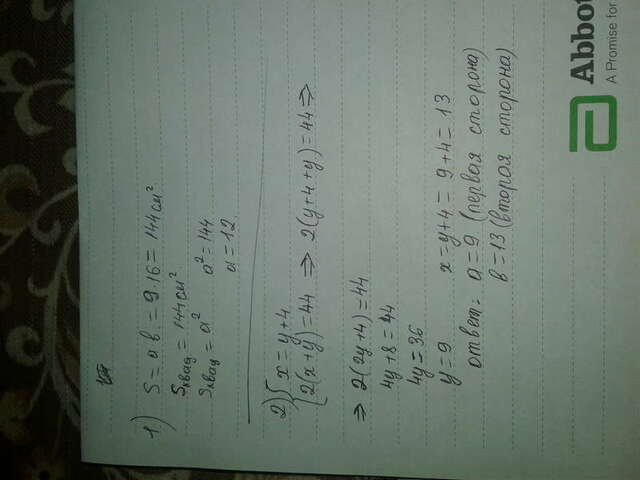 1) S = a в. = 9·16 = 144 см²
Sквад = 144 см²
Sквад = a² a² = 144
a = 12.
2) { x = y + 4
2(x+y) = 44 ⇒ 2(y+4+y) = 44 ⇒
⇒ 2(2y+4) = 44
4y + 8 = 44
4y = 36
y = 9 x = y+4 = 9+4 = 13
ответ: a = 9 (первая сторона)
в = 13 (вторая сторона)
Abbot
A Promise for